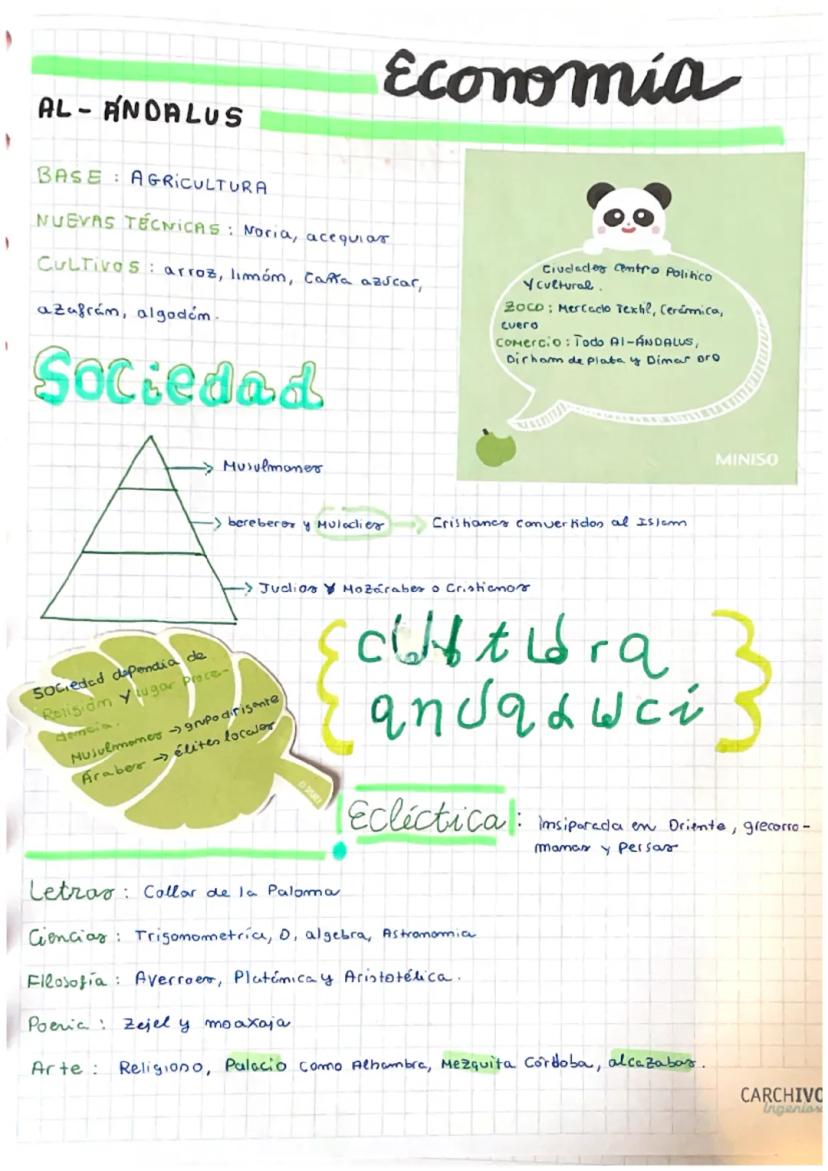 Economía
AL-ÁNDALUS
BASE : AGRICULTURA
NUEVAS TÉCNICAS : Noria, acequias
CULTIVOS : arroz, limóm, Caña azúcar,
azafrám, algodóm.
Ciudades Centro Político
y cultural.
ZOCO : Mercado Textil, Cerámica,
cuero
COMERCIO : Todo Al-ÁNDALUS,
Dirham de Plata y Dimar oro
MINISO
Sociedad
Musulmanes
bereberes y Muladíes → Cristianos convertidos al Islam
Judíos y Mozárabes o Cristianos
Sociedad dependía de
Religión y lugar proce-
dencia.
Musulmanes → grupo dirigente
Árabes → élites locales
cultura
andaluci
Ecléctica : imsiparada en Oriente, grecorro-
manas y Persas
Letras : Collar de la Paloma
Ciencias : Trigonometría, 0, algebra, Astronomia
Filosofía : Averroes, Platónica y Aristotélica.
Poesia : Zejel y moaxaja
Arte : Religioso, Palacio como Alhambra, Mezquita Córdoba, alcazabas.
CARCHIVO
Ingenios